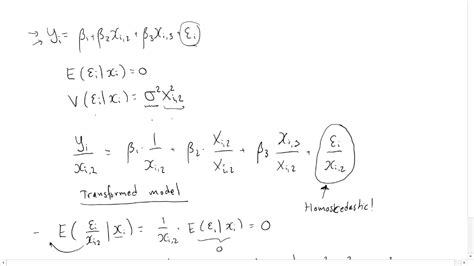 → yᵢ = β₁ + β₂xᵢ,₂ + β₃xᵢ,₃ + εᵢ
E(εᵢ|xᵢ) = 0
V(εᵢ|xᵢ) = σ²x²ᵢ,₂
yᵢ/xᵢ,₂ = β₁ · 1/xᵢ,₂ + β₂ · xᵢ,₂/xᵢ,₂ + β₃ xᵢ,₃/xᵢ,₂ + εᵢ/xᵢ,₂
Transformed model
Homoskedastic!
- E(εᵢ/xᵢ₂ | xᵢ) = 1/xᵢ,₂ · E(εᵢ|xᵢ) = 0
0